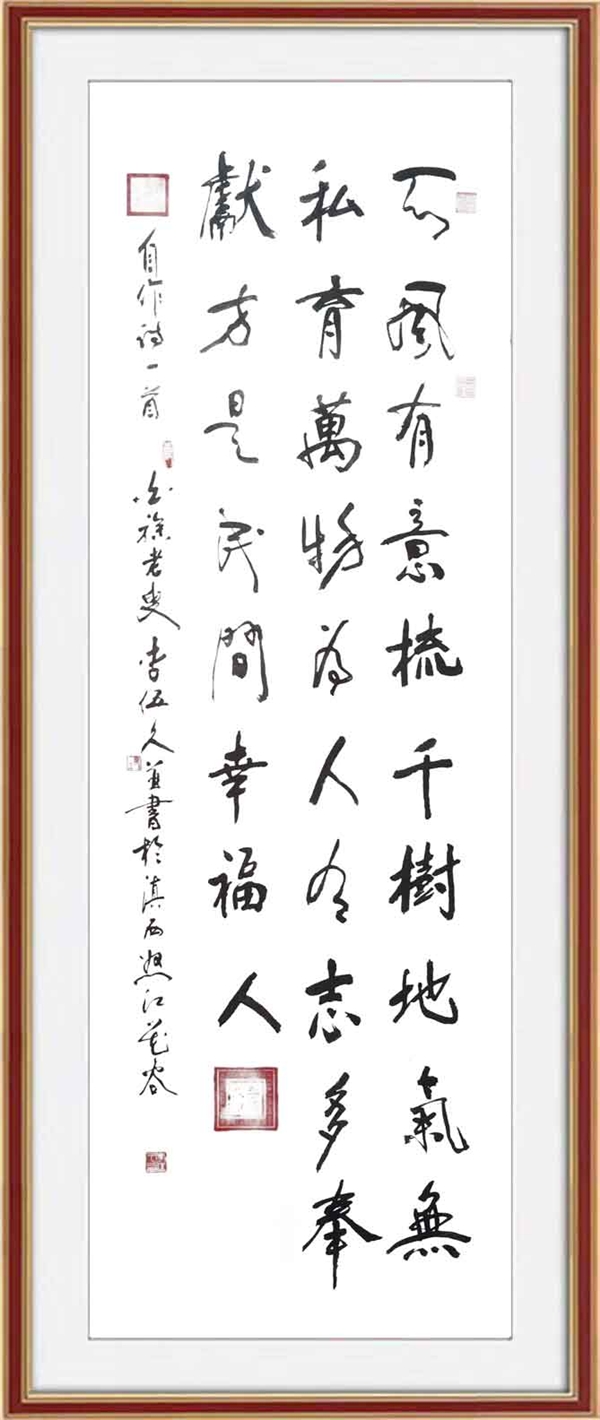 天風有意梳千樹地氣無
私育萬物為人有志多奉
獻方是民間幸福人
自作诗一首 白族老叟李伍久並書於滇西怒江花谷